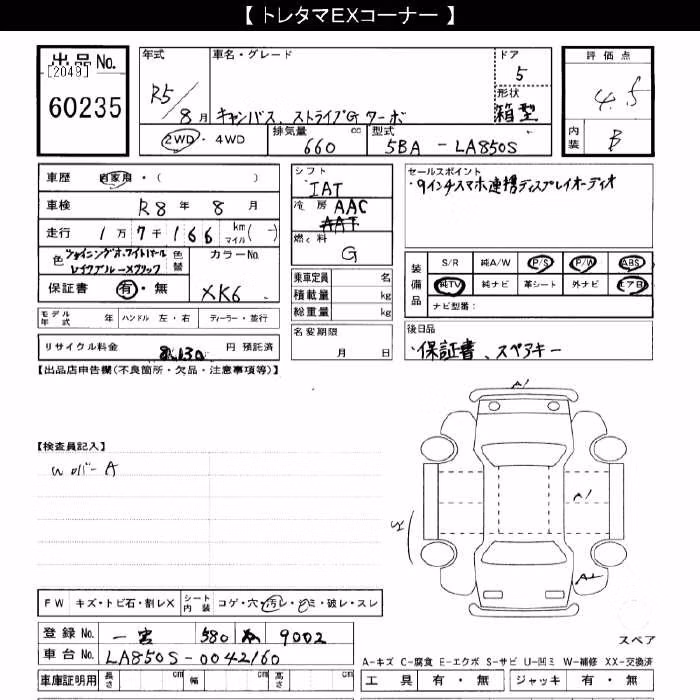 【 トレタマEXコーナー 】
出品 No.
[2049]
60235
年式
R5/8月
車名・グレード
キャンバス、ストライプG ターボ
ドア
5
形状
箱型
2WD・4WD
排気量
660 cc
型式
5BA - LA850S
評価点
4.5
内装
B
車歴 自家用・( )
車検 R8年 8月
走行 1万7千166 km マイル(-)
色 シャイニングホワイトパール
レイクブルーメタリック
色替
カラーNo.
XK6
保証書 有・無
モデル年式 年
ハンドル 左・右
ディーラー・並行
リサイクル料金 8,130 円 預託済
シフト
IAT
冷房 AAC
AAT
燃料
G
乗車定員 名
積載量 kg
総重量 kg
名変期限
月 日
セールスポイント
・9インチスマホ連携ディスプレイオーディオ
装備品
S/R 純A/W P/S P/W ABS
純TV 純ナビ 革シート 外ナビ エアB
ナビ型番:
後日品
・保証書、スペアキー
【出品店申告欄(不良箇所・欠品・注意事項等)】
【検査員記入】
A1
A1
FW キズ・トビ石・割レX
シート内装 コゲ・穴・汚レ・シミ・破レ・スレ
登録 No. 一宮 580 9002
車台 No. LA850S-0042160
車庫証明用 長さ cm 幅 cm 高さ cm
スペア
A-キズ C-腐食 E-エクボ S-サビ U-凹ミ W-補修 XX-交換済
工具 有・無 ジャッキ 有・無